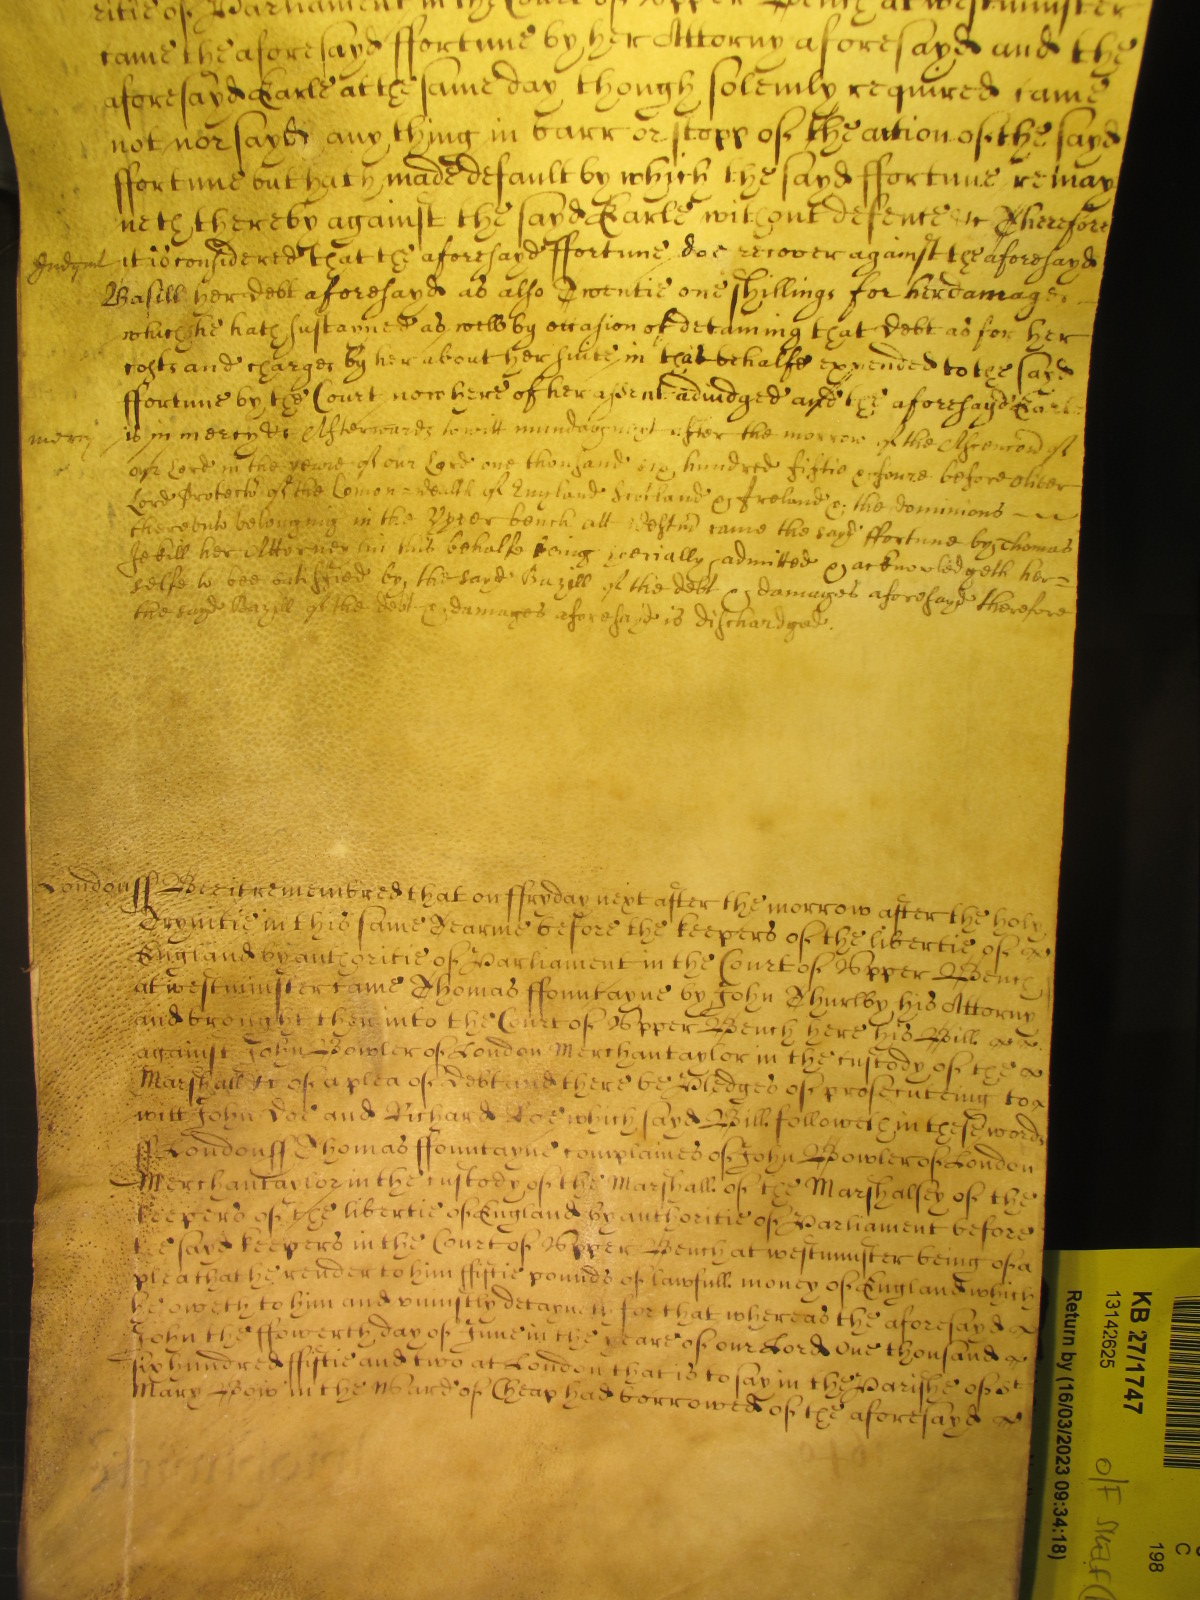 ritie of Parliament in the Court of Upper Bench at westminster
came the aforesayd ffortune by her Attorny aforesayd and the
aforesayd Earle at the same day though solemly required came
not nor sayd any thing in barr or stopp of the action of the sayd
ffortune but hath made default by which the sayd ffortune remay
neth thereby against the sayd Earle without defence &c Therefore
Judgmt it is considered that the aforesayd ffortune doe recover against the aforesayd
Basill her debt aforesayd as also Twentie one shillings for her damages
which she hath sustayned as well by occasion of detaining that debt as for her
costs and charges by her about her suite in that behalfe expended to the sayd
ffortune by the Court now here of her assent adiudged and the aforesayd Earle
mercy is in mercy &c Afterwards to witt munday next after the morrow of the Ascencon of
our Lord in the yeare of our Lord one thousand six hundred fiftie & foure before Oliver
Lord Protector of the Comon-wealth of England Scotland & Ireland & the dominions
thereunto belonging in the Upper bench att Westmr came the sayd ffortune by Thomas
Jekill her Attorney in this behalfe being specially admitted & acknowledgeth her=
selfe to bee satisfied by the sayd Bazill of the debt & damages aforesayd therefore
the sayd Bazill of the debt & damages aforesayd is dischardged.
London ss Bee it remembred that on ffryday next after the morrow after the holy
Trynitie in this same Tearme before the keepers of the libertie of
England by authoritie of Parliament in the Court of Upper Bench
at westminster came Thomas ffountayne by John Thurlby his Attorny
and brought then into the Court of Upper Bench here his Bill
against John Bowler of London Merchantaylor in the custody of the
Marshall &c of a plea of Debt and there be Pledges of prosecuteing to
witt John Doe and Richard Roe which sayd Bill followeth in these words
ss London ss Thomas ffountayne complaines of John Bowler of London
Merchantaylor in the custody of the Marshall of the Marshalsey of the
keepers of the libertie of England by authoritie of Parliament before
the sayd keepers in the Court of Upper Bench at westminster being of a
plea that he render to him ffiftie pounds of lawfull money of England which
he oweth to him and uniustly detayneth for that whereas the aforesayd
John the ffowerth day of June in the yeare of our Lord One thousand
six hundred ffiftie and two at London that is to say in the Parishe of St
Mary Bow in the Ward of Cheap had borrowed of the aforesayd
KB 27/1747
13142625
Return by (16/03/2023 09:34:18)
198
C